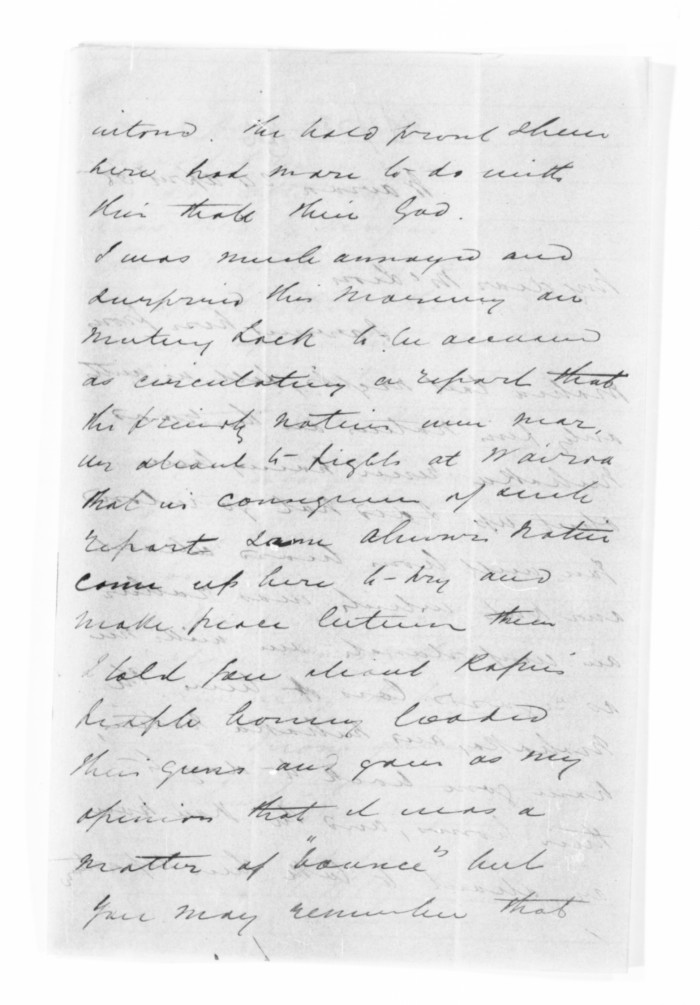 The bold front shewn
here had more to do with
this than their God.
I was much annoyed and
surprised this morning on
meeting Lock to be accused
as circulating a report that
the friendly natives were near
about to fight at Wairoa
that in consequence of such
report some Ahuriri Natives
come up here to try and
make peace between them
I told you about
people having loaded
their guns and gave as my
opinion that it was a
matter of "bounce" but
you may remember that